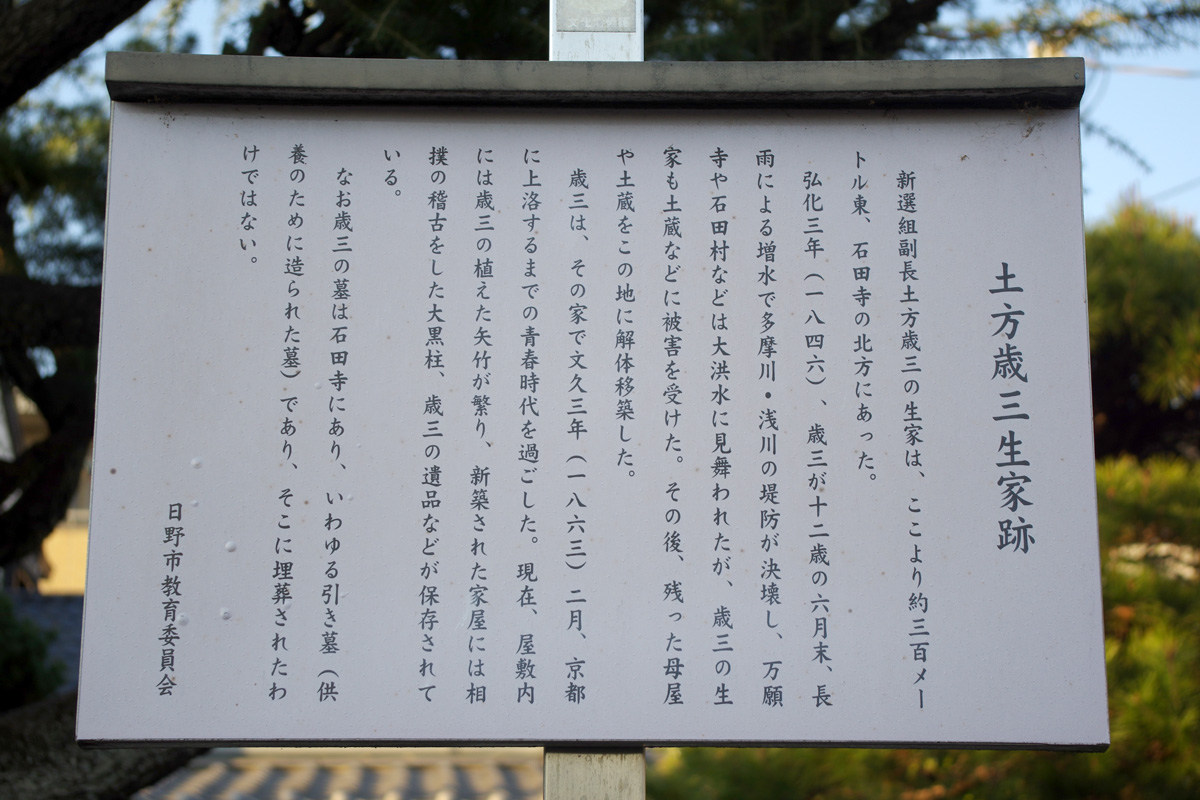 土方歳三生家跡
新選組副長土方歳三の生家は、ここより約三百メー
トル東、石田寺の北方にあった。
弘化三年（一八四六）、歳三が十二歳の六月末、長
雨による増水で多摩川・浅川の堤防が決壊し、万願
寺や石田村などは大洪水に見舞われたが、歳三の生
家も土蔵などに被害を受けた。その後、残った母屋
や土蔵をこの地に解体移築した。
歳三は、その家で文久三年（一八六三）二月、京都
に上洛するまでの青春時代を過ごした。現在、屋敷内
には歳三の植えた矢竹が繁り、新築された家屋には相
撲の稽古をした大黒柱、歳三の遺品などが保存されて
いる。
なお歳三の墓は石田寺にあり、いわゆる引き墓（供
養のために造られた墓）であり、そこに埋葬されたわ
けではない。
日野市教育委員会